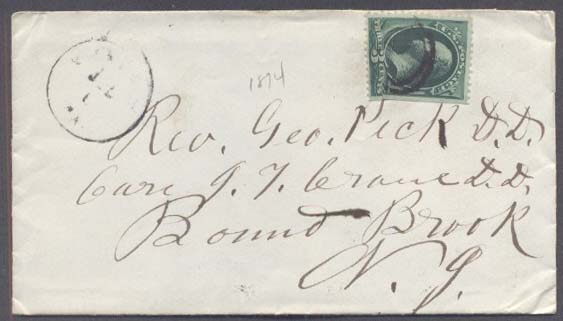 1874
Rev. Geo. Peck D.D.
Care J. T. Crane D.D.
Bound Brook
N. J.